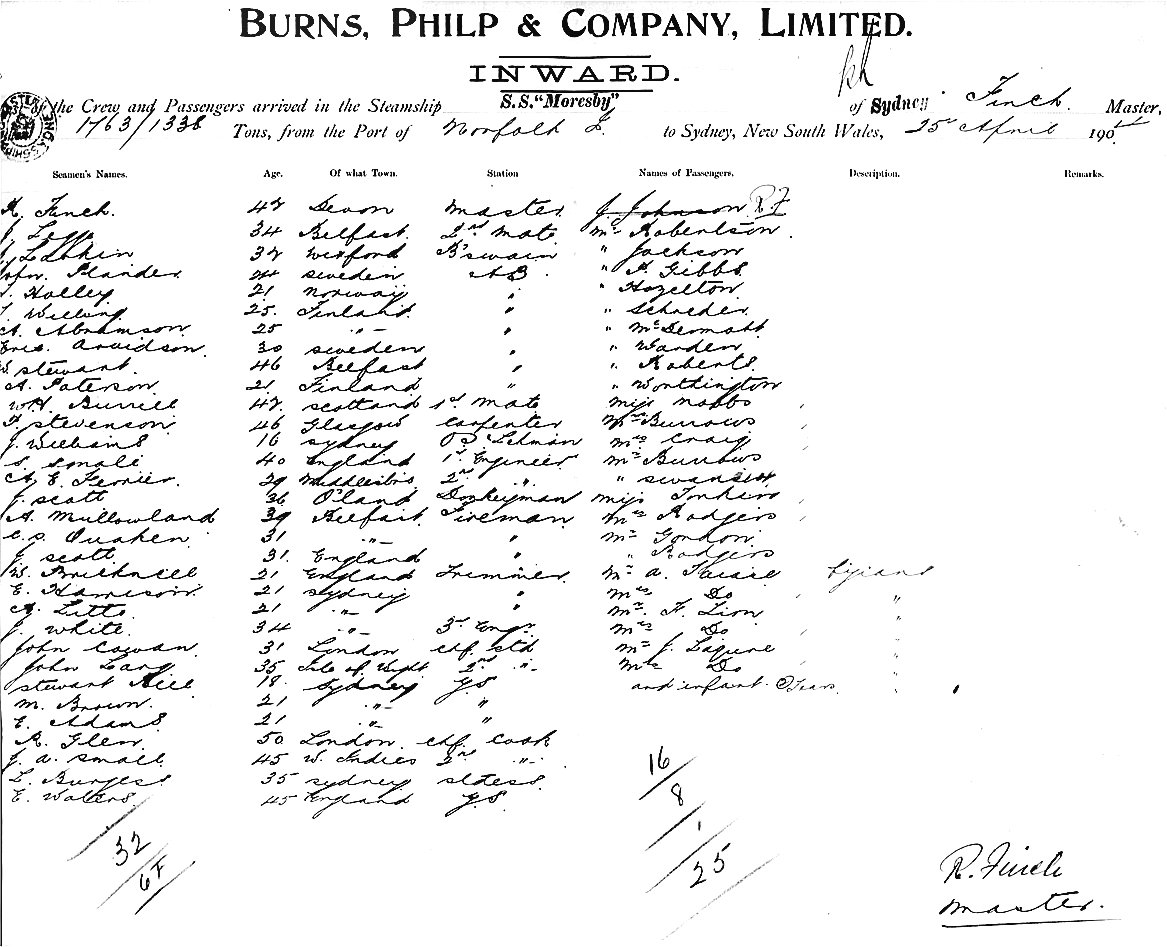 BURNS, PHILP & COMPANY, LIMITED.
INWARD.
of the Crew and Passengers arrived in the Steamship S.S. "Moresby" of Sydney Finch. Master,
1763/1338 Tons, from the Port of Norfolk I. to Sydney, New South Wales, 25 April 190
Seamen's Names. Age. Of what Town. Station Names of Passengers. Description. Remarks.
R. Finch. 42 Devon Master J Johnson R.F
34 Belfast 2nd Mate Mr Robertson
J Larkin 32 Wexford B'swain " Jackson
John Plander 24 Sweden AB " A Gibbs
Holley 21 Norway " " Hazelton
25. Finland " " Schroder
A. Abramson 25 " " " McDermott
Arvidson 30 Sweden " " Warden
Stewart. 46 Belfast " " Roberts
A. Paterson 21 Finland " " Worthington
W.H. Burrill 42 Scotland 1st Mate Miss Nobbs
F Stevenson 46 Glasgow Carpenter Burrows
J. Williams 16 Sydney Mrs Craig
40 England 1st Engineer Mr Burrows
A, E. Ferrier. 29 Middlesbro 2nd " "
J. Scott 36 Donkeyman Miss
A. Mullowland 39 Belfast Fireman Mrs Rodgers
C.S. 31 " " Mr Gordon
J Scott 31. England " " Rodgers
W. 21 England Trimmer Mr A.
E. Harrison 21 Sydney " Mrs Do "
A. Litto 21 " " Mr. F. Lion "
J. White. 34 " 3rd Engr. Mrs Do "
John Cowan. 31 London chf Std Mr J. "
John Lang 35 Isle of Wight 2nd " Mrs Do "
Stewart Hill 18 Sydney GS and infant "
M. Brown. 21 " "
E. Adams 21 " "
R. Glen 50 London. chf Cook
J. A. Small 45 W. Indies 2nd "
L. Burgess 35 Sydney Stdess
E. Waters. 45 England GS
16
8
1
32 25
67
R. Finch
Master.